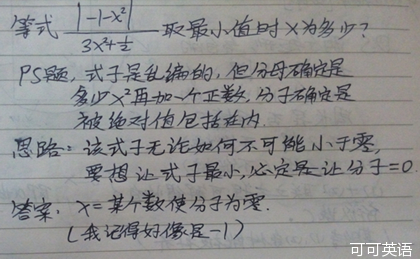 等式 |-1-x²| / 3x²+½ 取最小值时x为多少?
PS题,式子是乱编的,但分母确定是
多少x²再加一个正数,分子确定是
被绝对值包括在内.
思路:该式子无论如何不可能小于零,
要想让式子最小,必定是让分子=0.
答案:x=某个数使分子为零.
(我记得好像是-1)
可可英语